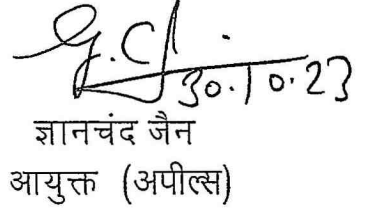 30.10.23
ज्ञानचंद जैन
आयुक्त (अपील्स)